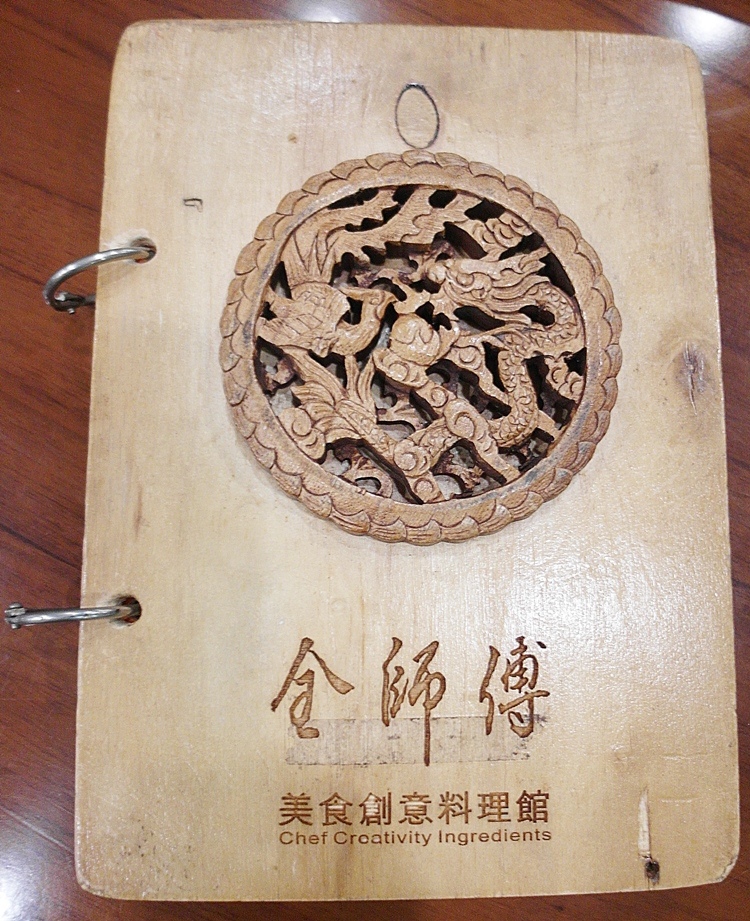 全師傅
美食創意料理館
Chef Creativity Ingredients